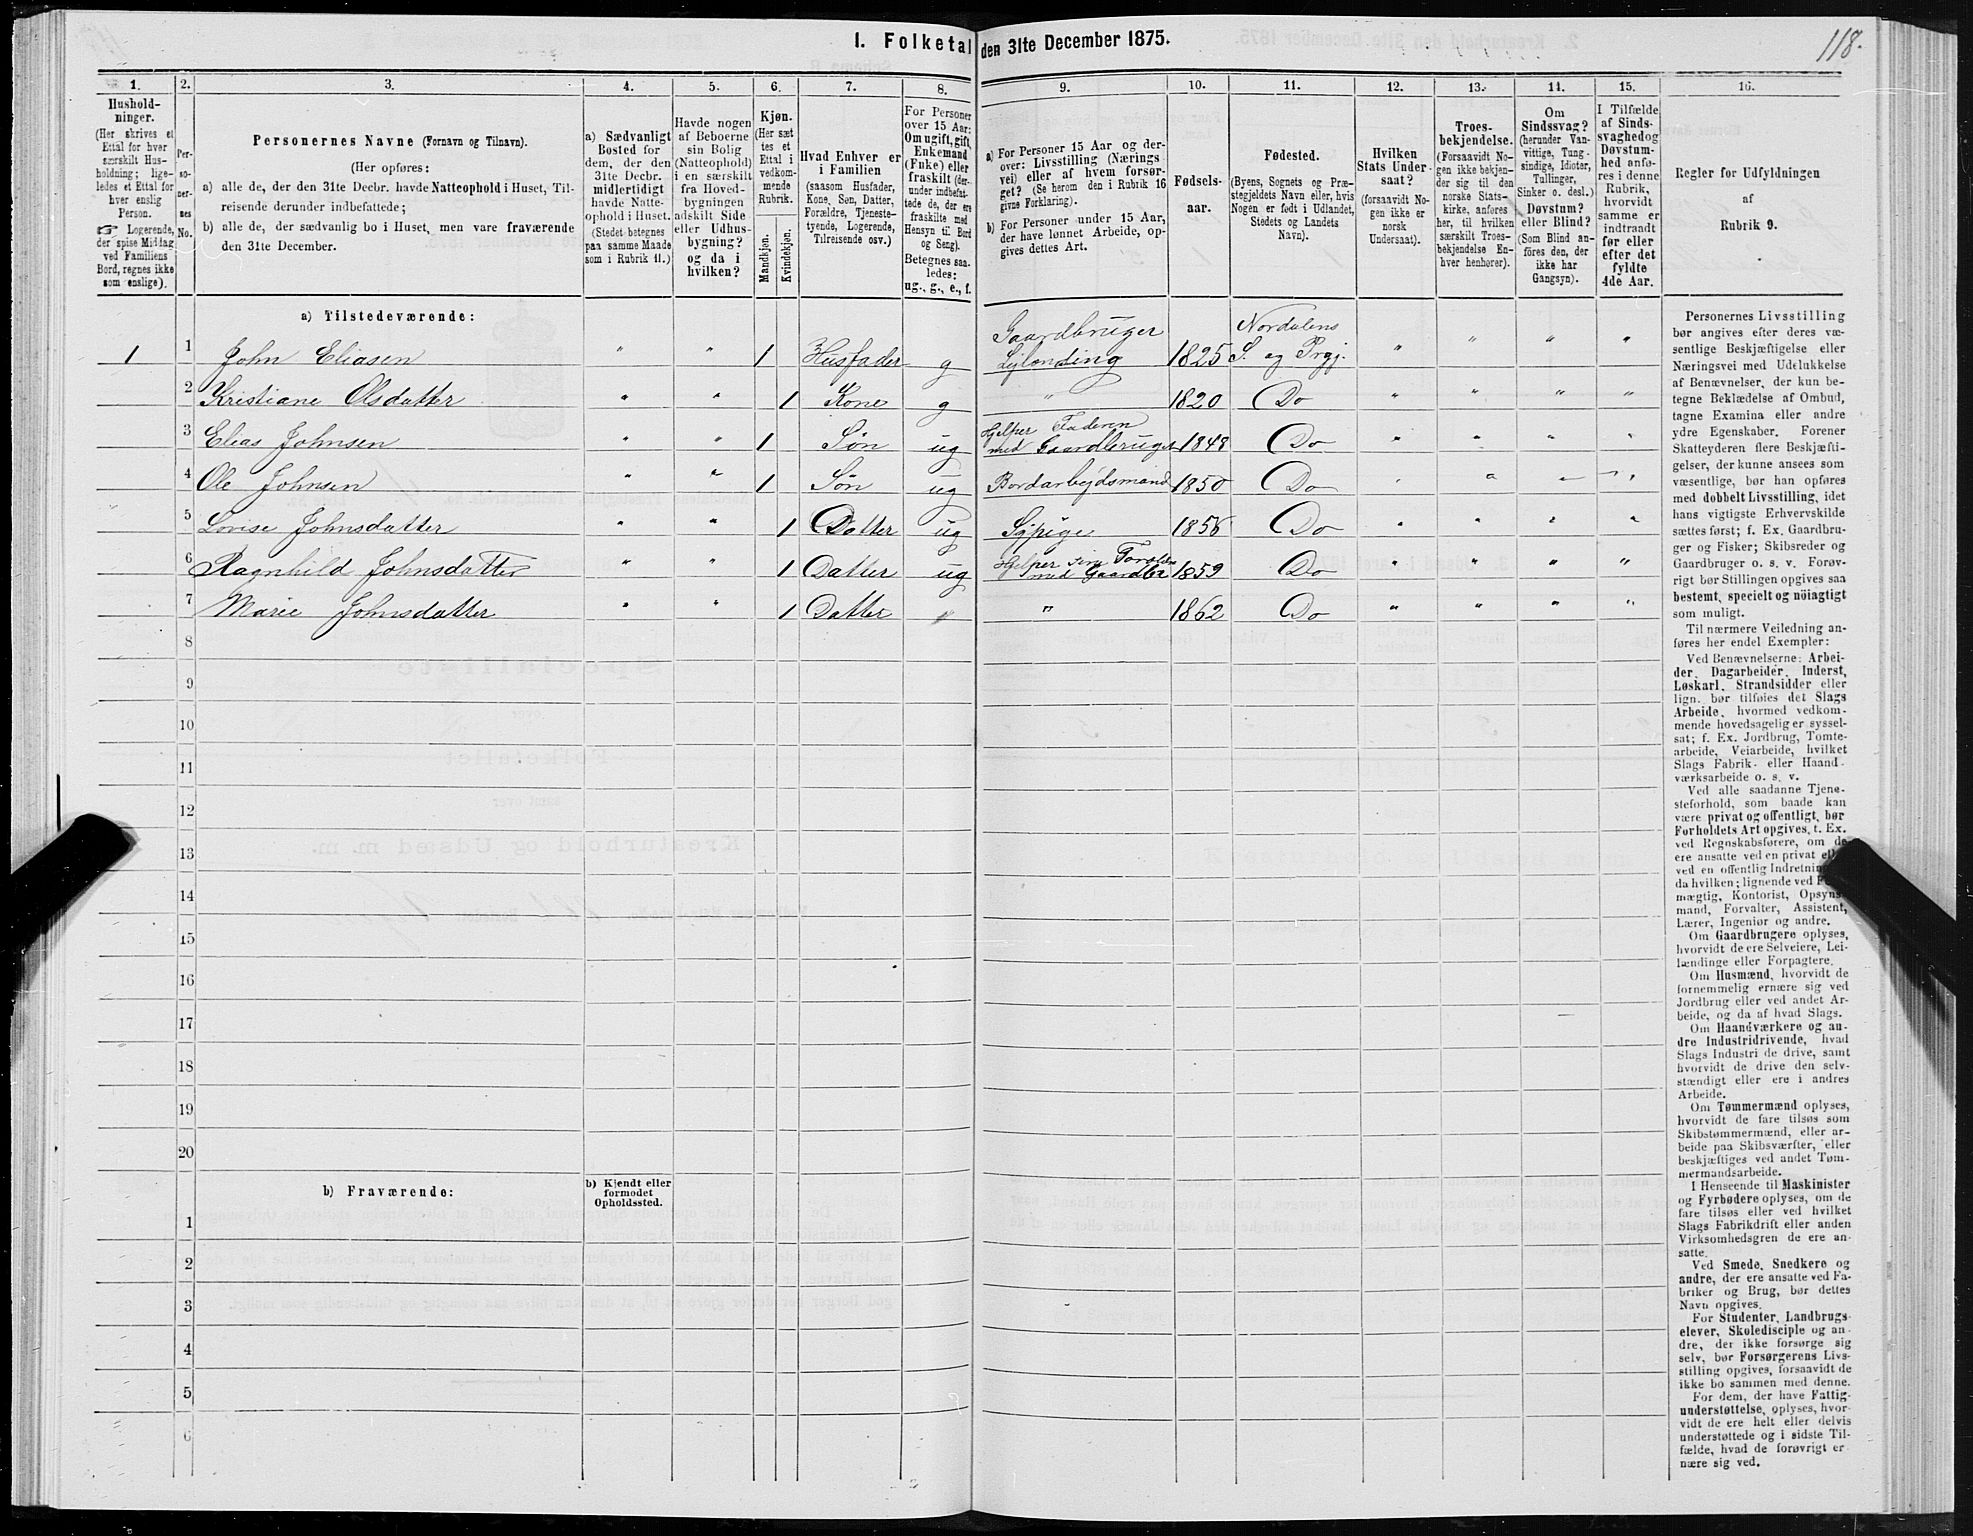 I. Folketal den 31te December 1875.
118.
1. 2. 3. 4. 5. 6. 7. 8. 9. 10. 11. 12. 13. 14. 15. 16.
Hushold-
ninger.
(Her skrives et
Ettal for hver
særskilt Hus-
holdning; lige-
ledes et Ettal for
hver enslig
Person.
Logerende,
der spise Middag
ved Familiens
Bord, regnes ikke
som enslige).
Per-
so-
ner-
nes
No.
Personernes Navne (Fornavn og Tilnavn).
(Her opføres:
a) alle de, der den 31te Decbr. havde Natteophold i Huset, Til-
reisende derunder indbefattede;
b) alle de, der sædvanlig bo i Huset, men vare fraværende
den 31te December.
a) Sædvanligt
Bosted for
dem, der den
31te Decbr.
midlertidigt
havde Natte-
ophold i Huset.
(Stedet betegnes
paa samme Maade
som i Rubrik 11.)
Havde nogen
af Beboerne
sin Bolig
(Natteophold)
i en særskilt
fra Hoved-
bygningen
adskilt Side
eller Udhus-
bygning?
og da i
hvilken?
Kjøn.
(Her sæt
tes et
Ettal i
vedkom-
mende
Rubrik.
Mandkjøn.
Kvindekjøn.
Hvad Enhver er
i Familien
(saasom Husfader,
Kone, Søn, Datter,
Forældre, Tjeneste-
tyende, Logerende,
Tilreisende osv.)
For Personer
over 15 Aar:
Om ugift, gift,
Enkemand
(Enke) eller
fraskilt (der-
under indbefat-
tede de, der ere
fraskilte med
Hensyn til Bord
og Seng).
Betegnes saa-
ledes:
ug., g., e., f.
a) For Personer 15 Aar og der-
over: Livsstilling (Nærings
vei) eller af hvem forsør-
get? (Se herom den i Rubrik 16
givne Forklaring).
b) For Personer under 15 Aar,
der have lønnet Arbeide, op-
gives dettes Art.
Fødsels-
aar.
Fødested.
(Byens, Sognets og Præ-
stegjeldets Navn eller, hvis
Nogen er født i Udlandet,
Stedets og Landets
Navn).
Hvilken
Stats Under-
saat?
(forsaavidt No-
gen ikke er
norsk
Undersaat).
Troes-
bekjendelse.
(Forsaavidt No-
gen ikke bekjen-
der sig til den
norske Stats-
kirke, anføres
her, til hvilken
særskilt Troes-
bekjendelse En-
hver henhører).
Om
Sindssvag?
(herunder Van-
vittige, Tung-
sindige, Idioter,
Tullinger,
Sinker o. desl.)
Døvstum?
eller Blind?
(Som Blind an-
føres den, der
ikke har
Gangsyn).
I Tilfælde
af Sinds-
svaghed og
Døvstum-
hed anfø-
res i denne
Rubrik,
hvorvidt
samme er
indtraadt
før eller
efter det
fyldte
4de Aar.
Regler for Udfyldningen
af
Rubrik 9.
a) Tilstedeværende:
Gaardbruger Nordalens
1 1 John Eliasen " " 1 Husfader g Leilænding 1825 S. og Prgj. " " " "
2 Kristiane Olsdatter " " 1 Kone g " 1820 Do " " " "
Hjelper Faderen
3 Elias Johnsen " " 1 Søn ug med Gaardbruget 1848 Do " " " "
4 Ole Johnsen " " 1 Søn ug Bordarbejdsmand 1850 Do " " " "
5 Lovise Johnsdatter " " 1 Datter ug Sypige 1856 Do " " " "
Hjelper sin
6 Ragnhild Johnsdatter " " 1 Datter ug med Gaardbr 1859 Do " " " "
7 Marie Johnsdatter " " 1 Datter " " 1862 Do " " " "
8
9
10
11
12
13
14
15
16
17
18
19
20
b) Fraværende:
b) Kjendt eller
formodet
Opholdssted.
1
2
3
4
5
6
Personernes Livsstilling
bør angives efter deres væ-
sentlige Beskjæftigelse eller
Næringsvei med Udelukkelse
af Benævnelser, der kun be-
tegne Beklædelse af Ombud,
tagne Examina eller andre
ydre Egenskaber. Forener
Skatteyderen flere Beskjæfti-
gelser, der kunne ansees som
væsentlige, bør han opføres
med dobbelt Livsstilling, idet
hans vigtigste Erhvervskilde
sættes først; f. Ex. Gaardbru-
ger og Fisker; Skibsreder og
Gaardbruger o. s. v. Forøv-
rigt bør Stillingen opgives saa
bestemt, specielt og nöiagtigt
som muligt.
Til nærmere Veiledning an-
føres her endel Exempler:
Ved Benævnelserne: Arbei-
der, Dagarbeider, Inderst,
Løskarl, Strandsidder eller
lign. bør tilføies det Slags
Arbeide, hvormed vedkom-
mende hovedsagelig er syssel-
sat; f. Ex. Jordbrug, Tomte-
arbeide, Veiarbeide, hvilket
Slags Fabrik- eller Haand-
værksarbeide o. s. v.
Ved alle saadanne Tjene-
steforhold, som baade kan
være privat og offentligt, bør
Forholdets Art opgives, t. Ex.
ved Regnskabsførere, om de
ere ansatte ved en privat
ved en offentlig Indretning
da hvilken; lignende ved
mægtig, Kontorist, Opsyns-
mand, Forvalter, Assistent,
Lærer, Ingeniør og andre.
Om Gaardbrugere oplyses,
hvorvidt de ere Selveiere, Lei-
lændinge eller Forpagtere.
Om Husmænd, hvorvidt de
fornemmelig ernære sig ved
Jordbrug eller ved andet Ar-
beide, og da af hvad Slags.
Om Haandværkere og an-
dre Industridrivende, hvad
Slags Industri de drive, samt
hvorvidt de drive den selv-
stændigt eller ere i andres
Arbeide.
Om Tømmermænd oplyses,
hvorvidt de fare tilsøs som
Skibstømmermænd, eller ar-
beide paa Skibsværfter, eller
beskjæftiges ved andet Tøm-
mermandsarbeide.
I Henseende til Maskinister
og Fyrbødere oplyses, om de
fare tilsøs eller ved hvilket
Slags Fabrikdrift eller anden
Virksomhedsgren de ere an-
satte.
Ved Smede, Snedkere og
andre, der ere ansatte ved Fa-
briker og Brug, bør dettes
Navn opgives.
For Studenter, Landbrugs-
elever, Skoledisciple og an-
dre, der ikke forsørge sig
selv, bør Forsørgerens Livs-
stilling opgives, forsaavidt de
ikke bo sammen med denne.
For dem, der have Fattig-
understøttelse, oplyses, hvor-
vidt de ere helt eller delvis
understøttede og i sidste Til-
fælde, hvad de forøvrigt er-
nære sig ved.